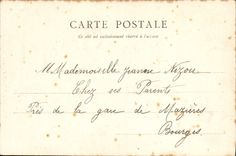 CARTE POSTALE
Ce côté est exclusivement réservé à l'adresse
Mademoiselle Jeanne Nizou
Chez ses Parents
Près de la gare de Mazières
Bourges